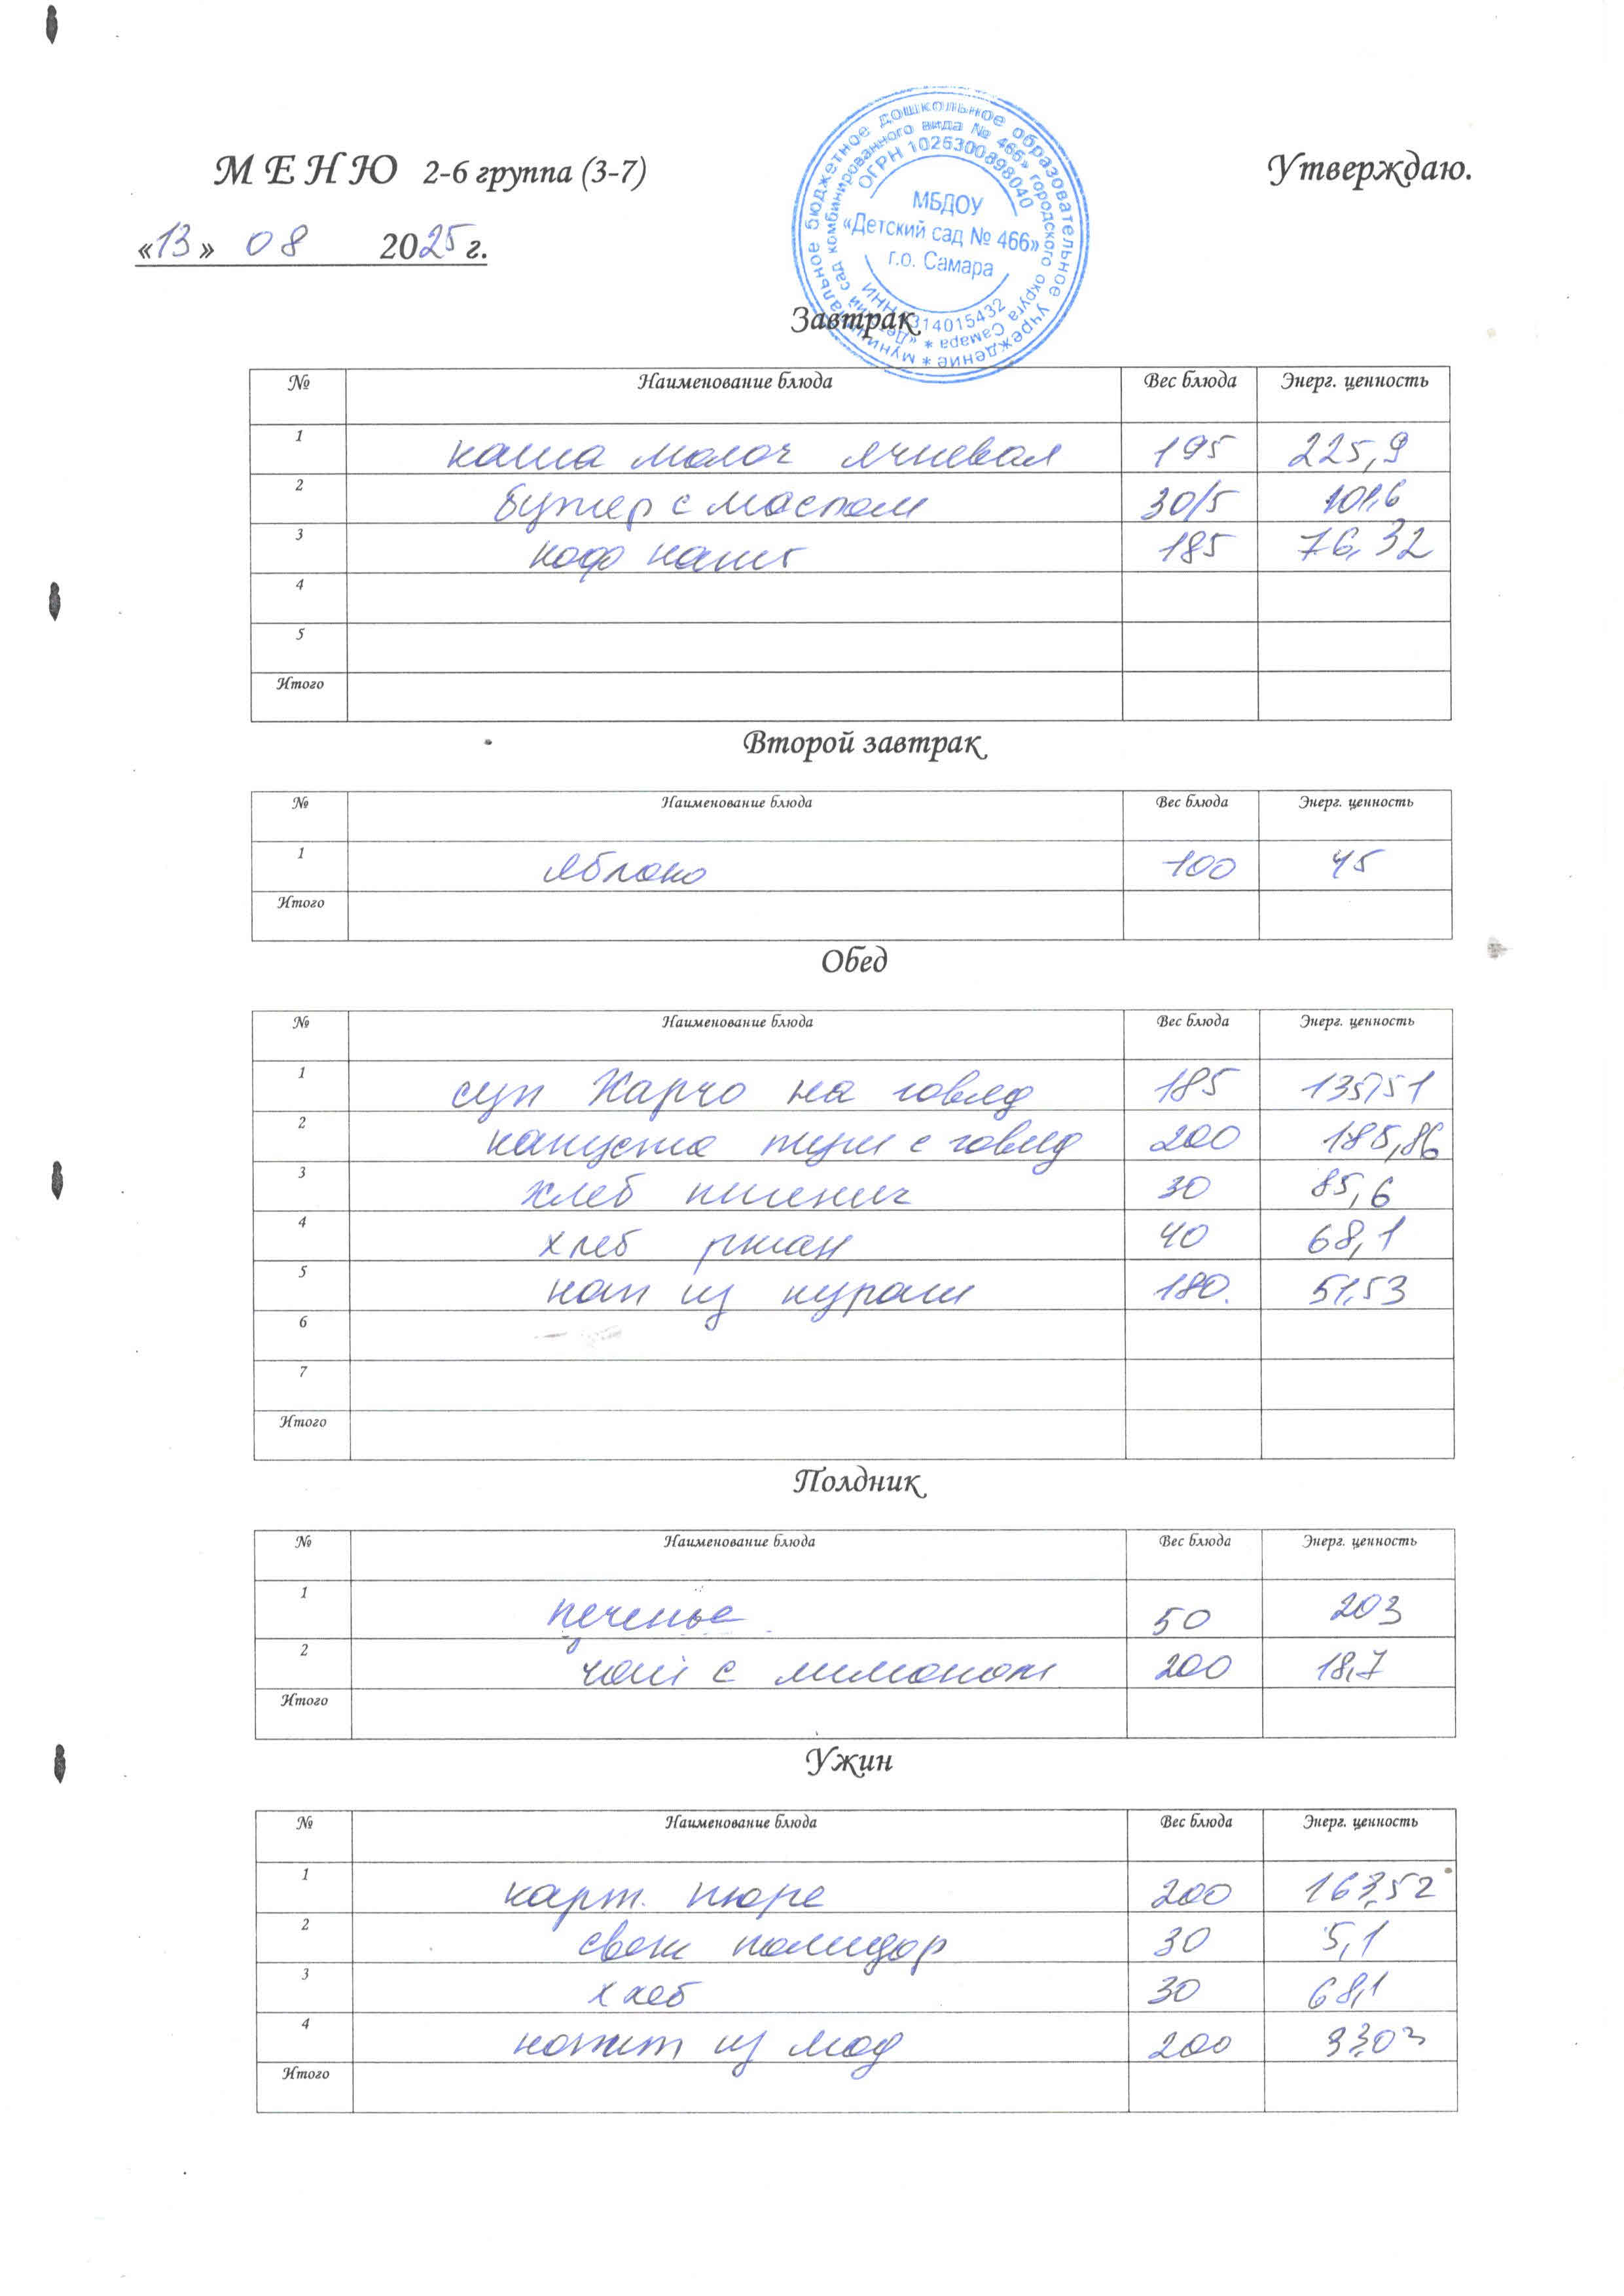 М Е Н Ю 2-6 группа (3-7)
Утверждаю.
«13» 08 2025 г.
муниципальное бюджетное дошкольное образовательное учреждение *
«Детский сад комбинированного вида № 466» городского округа Самара *
ОГРН 1026300898040
МБДОУ
«Детский сад № 466»
г.о. Самара
ИНН 6314015432
Завтрак
№ Наименование блюда Вес блюда Энерг. ценность
1 каша молоч ячневая 195 225,9
2 бутер с маслом 30/5 101,6
3 коф напит 185 76,32
4
5
Итого
Второй завтрак
№ Наименование блюда Вес блюда Энерг. ценность
1 яблоко 100 45
Итого
Обед
№ Наименование блюда Вес блюда Энерг. ценность
1 суп Харчо на говяд 185 135,51
2 капуста туш с говяд 200 185,86
3 хлеб пшенич 30 85,6
4 хлеб ржан 40 68,1
5 нап из кураги 180. 51,53
6
7
Итого
Полдник
№ Наименование блюда Вес блюда Энерг. ценность
1 печенье 50 203
2 чай с лимоном 200 18,7
Итого
Ужин
№ Наименование блюда Вес блюда Энерг. ценность
1 карт. пюре 200 163,52
2 свеж помидор 30 5,1
3 хлеб 30 68,1
4 200
Итого